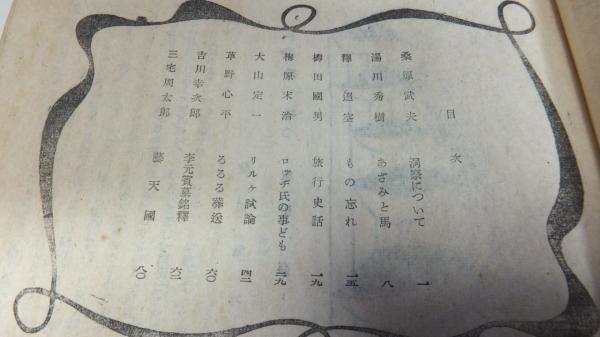 目次
桑原武夫 洞察について 一
湯川秀樹 あさみと馬 八
釋迢空 もの忘れ 一五
柳田國男 旅行史話 一九
梅原末治 ロッヂ氏の事ども 二九
大山定一 リルケ試論 四二
草野心平 るるる葬送 六〇
吉川幸次郎 李元賓墓銘釋 六二
三宅周太郎 藝天國 八〇